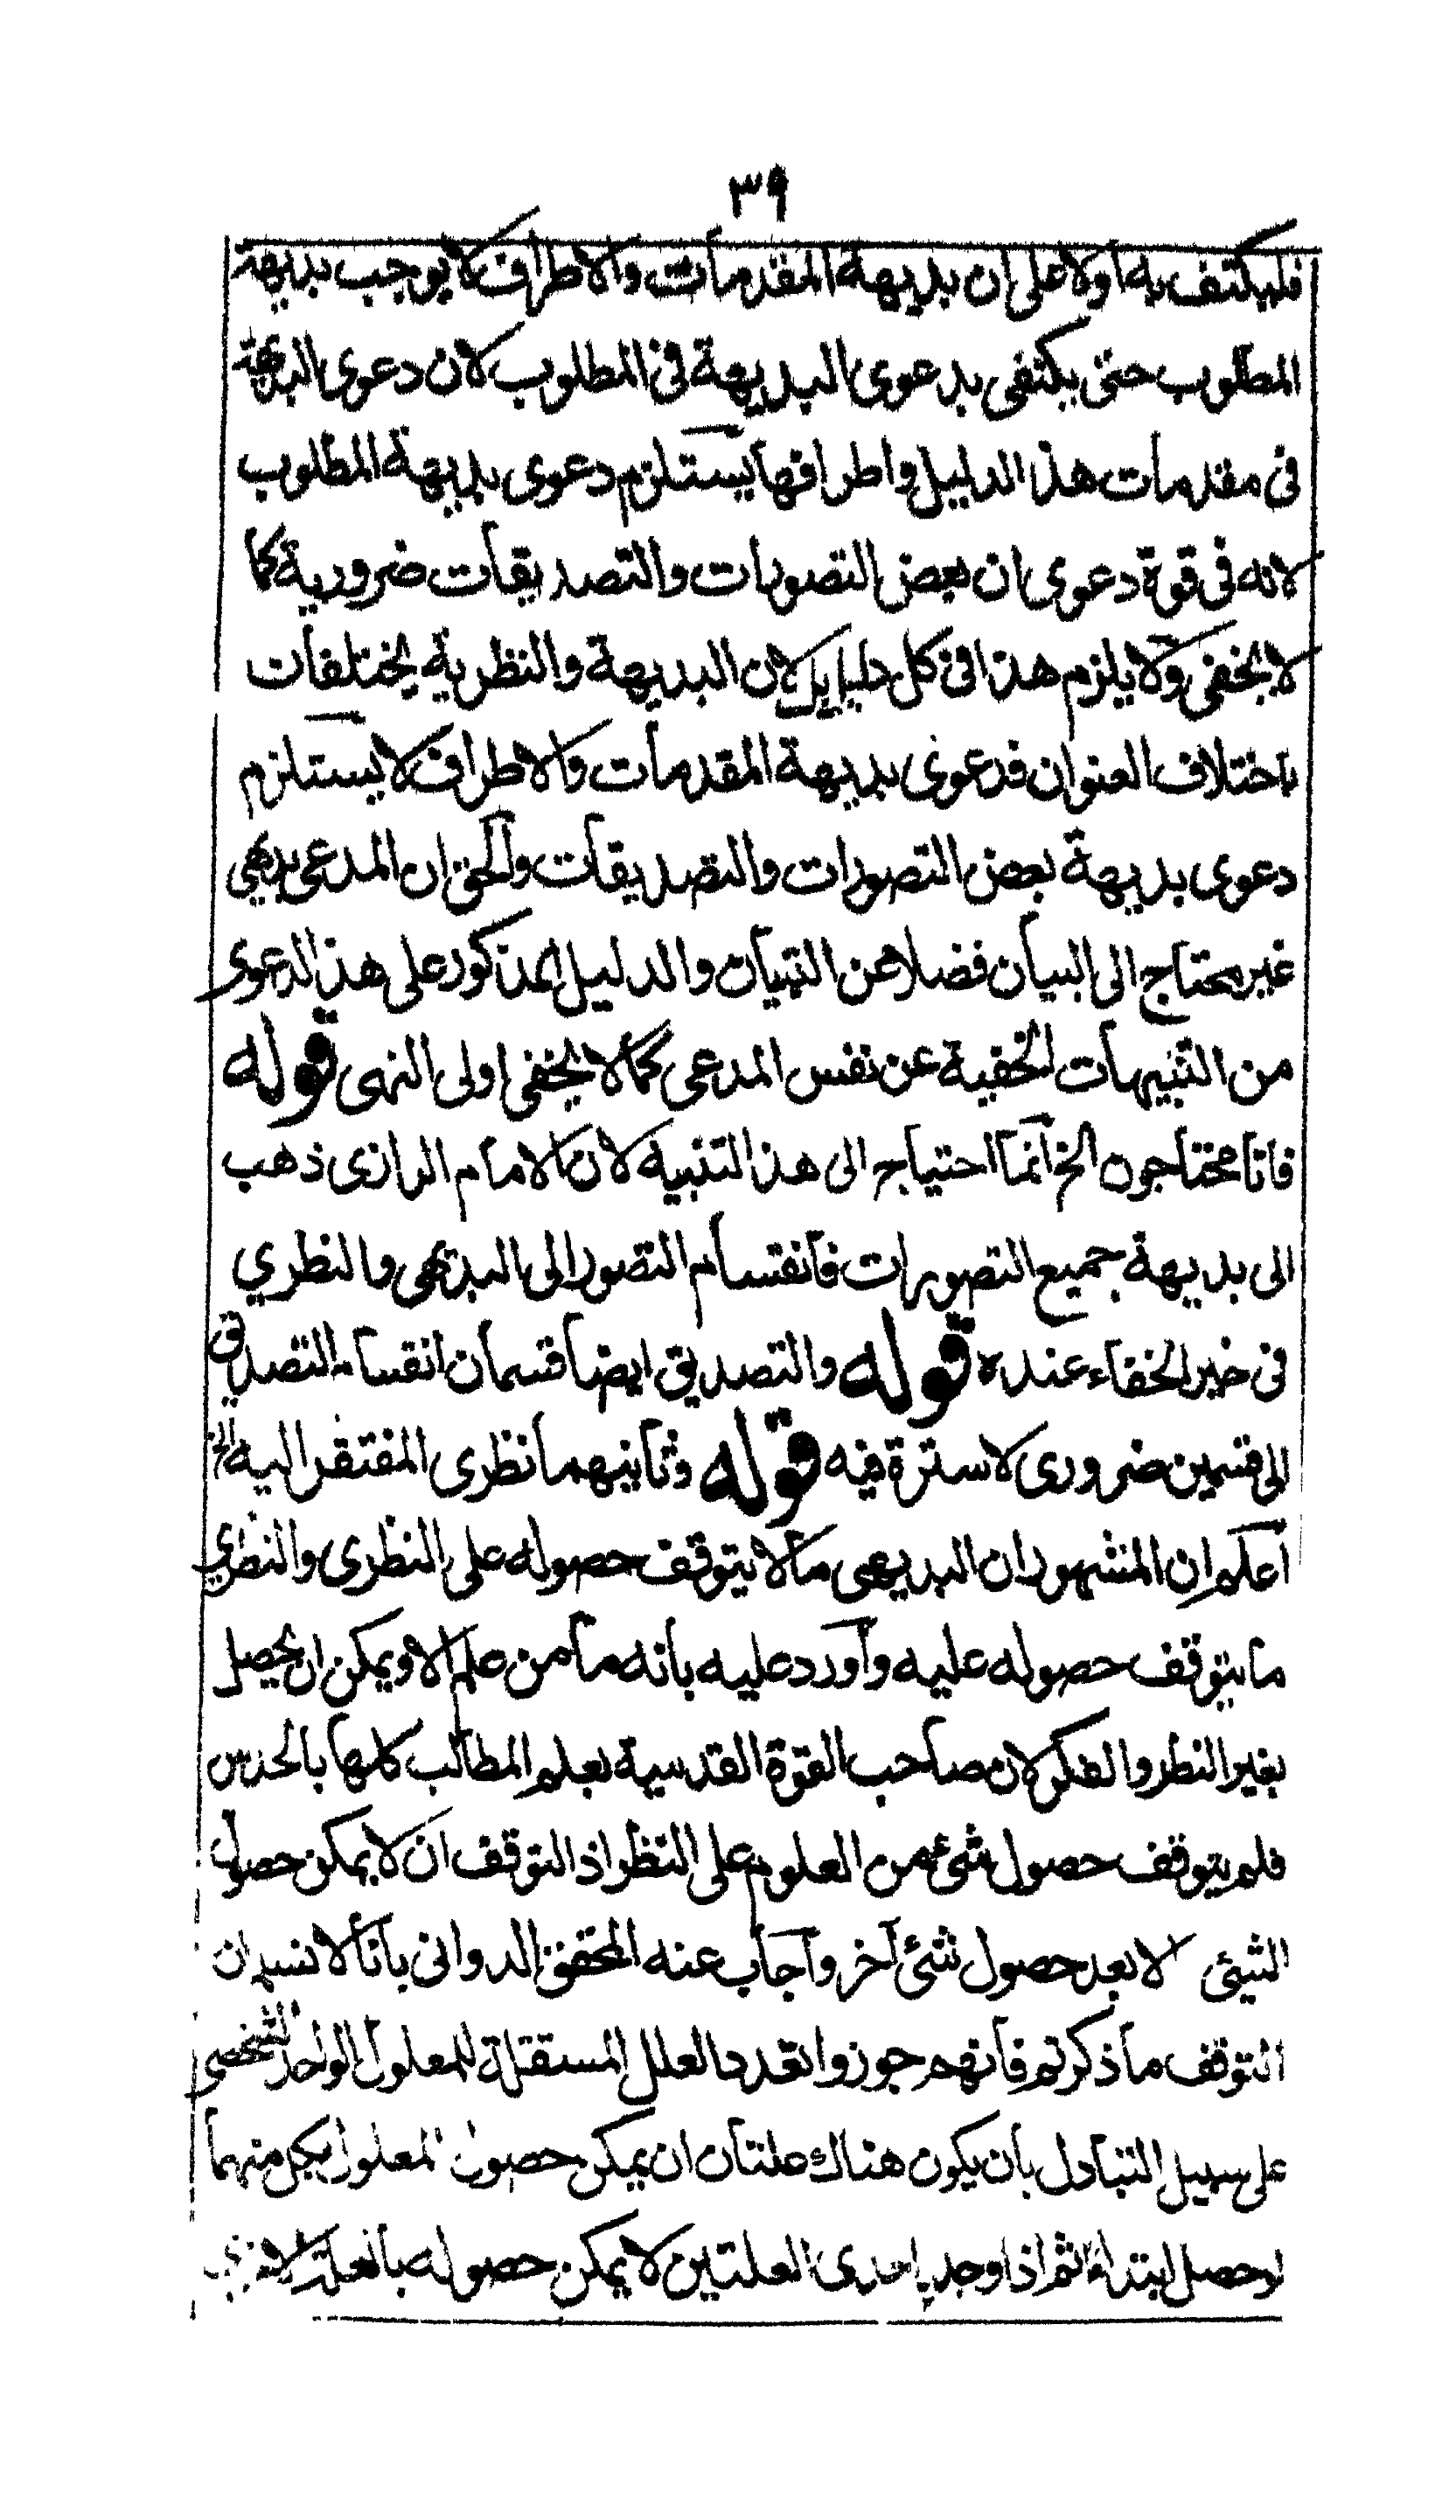 ٣٩
فليكتف به اولا على ان بديهة المقدمات والاطراف لا يوجب بديهة
المطلوب حتى يكتفى بدعوى البديهة فى المطلوب لان دعوى البديهة
فى مقدمات هذا الدليل واطرافها يستلزم دعوى بديهة المطلوب
لانه فى قوة دعوى ان بعض التصورات والتصديقات ضرورية كما
لا يخفى ولا يلزم هذا فى كل دليل لان البديهة والنظرية يختلفان
باختلاف العنوان فدعوى بديهة المقدمات والاطراف لا يستلزم
دعوى بديهة بعض التصورات والتصديقات والحق ان المدعى بديهي
غير محتاج الى البيان فضلا عن التبيان والدليل المذكور على هذا الدعوى
من التنبيهات الخفية عن نفس المدعى كما لا يخفى اولى النهى قوله
فانا محتاجون الخ انما احتياج الى هذا التنبيه لان الامام الرازى ذهب
الى بديهة جميع التصورات فانقسام التصور الى البديهى والنظري
فى خير الخفاء عنده قوله والتصديق ايضا قسمان انقسام التصديق
الى قسمين ضرورى لا سترة فيه قوله وثانيهما نظرى المفتقر اليه الخ
اعلم ان المشهور ان البديهى ما لا يتوقف حصوله على النظرى والنظري
ما يتوقف حصوله عليه واورد عليه بانه ما من علم الا ويمكن ان يحصل
بغير النظر والفكر لان صاحب القوة القدسية يعلم المطالب كلها بالحدس
فلم يتوقف حصول شئ من العلوم على النظر اذ التوقف ان لا يمكن حصول
الشيئ الا بعد حصول شئ آخر واجاب عنه المحقق الدوانى بانا لا نسلم ان
التوقف ما ذكرتم فانهم جوزوا تعدد العلل المستقلة للمعلول الواحد الشخصى
على سبيل التبادل بان يكون هناك علتان ان يمكن حصول المعلول بكل منهما
لو حصل ابتداء ثم اذا وجد باحدى العلتين لا يمكن حصوله بالعلة الاخرى